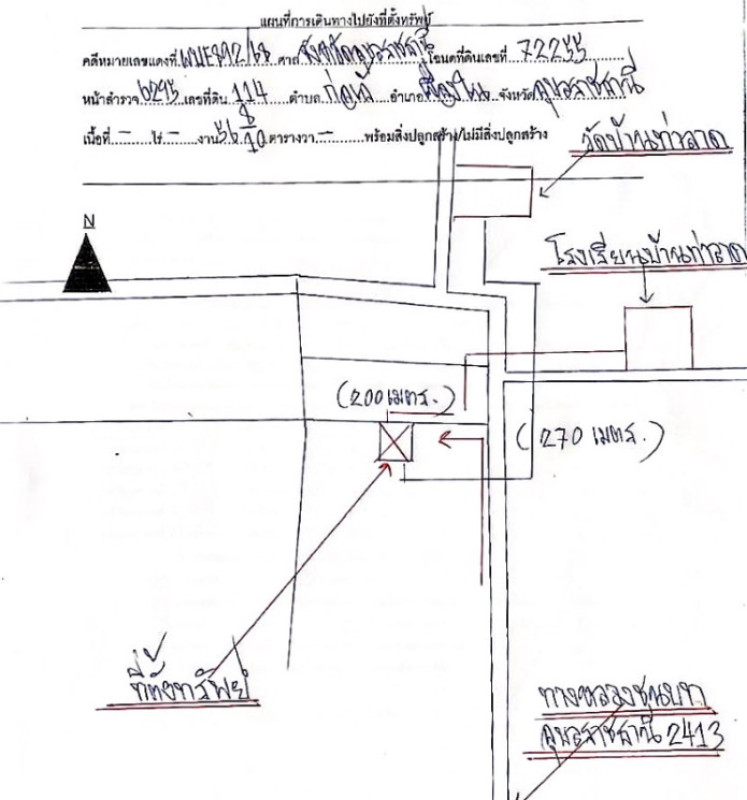 แผนที่การเดินทางไปยังที่ตั้งทรัพย์
คดีหมายเลขแดงที่ ผบE392/68 ศาล จังหวัดอุบลราชธานี โฉนดที่ดินเลขที่ 72255
หน้าสำรวจ 6295 เลขที่ดิน 114 ตำบล ก่อเอ้ อำเภอ เขื่องใน จังหวัด อุบลราชธานี
เนื้อที่ - ไร่ - งาน 56 8/10 ตารางวา - พร้อมสิ่งปลูกสร้าง/ไม่มีสิ่งปลูกสร้าง
วัดบ้านท่าลาด
N
โรงเรียนบ้านท่าลาด
(200 เมตร.)
(270 เมตร.)
ที่ตั้งทรัพย์
ทางหลวงชนบท
อุบลราชธานี 2413